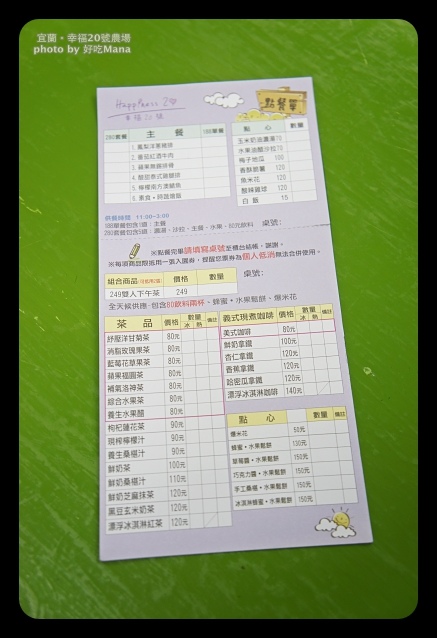 宜蘭•幸福20號農場
photo by 好吃Mana
Happiness 20
幸福20號
點餐單
280套餐 主 餐 188單餐
1. 鳳梨洋蔥豬排
2. 蕃茄紅酒牛肉
3. 蘋果無錫排骨
4. 酸甜泰式雞腿排
5. 檸檬南方澳鯖魚
點 心 數量
玉米奶油濃湯70
水果油醋沙拉70
梅子地瓜 100
香酥脆薯 120
魚米花 120
酸辣雞球 120
白 飯 15
供餐時段 11:00~3:00
188單餐包含1道：主餐
280套餐包含5道：濃湯、沙拉、主餐、水果、80元飲料 桌號：
※點餐完畢請填寫桌號至櫃台結帳，謝謝。
※每項商品限抵用一張入園券，提醒您票券為個人低消無法合併使用。
組合商品 價格 數量 桌號：
249雙人下午茶 249
全天候供應-包含80飲料兩杯、蜂蜜•水果鬆餅、爆米花
茶 品 價格 數量 冰 熱 備註
紓壓洋甘菊茶 80元
消脂玫瑰果茶 80元
藍莓花草果茶 80元
蘋果福圓茶 80元
補氣洛神茶 80元
綜合水果茶 80元
養生水果醋 80元
枸杞蓮花茶 90元
現榨檸檬汁 90元
養生桑椹汁 90元
鮮奶茶 100元
鮮奶桑椹汁 110元
鮮奶芝麻抹茶 120元
黑豆玄米奶茶 120元
漂浮冰淇淋紅茶 120元
義式現煮咖啡 價格 數量 冰 熱 備註
美式咖啡 80元
鮮奶拿鐵 100元
杏仁拿鐵 120元
香蕉拿鐵 120元
哈密瓜拿鐵 120元
漂浮冰淇淋咖啡 140元
點 心 數量 備註
爆米花 50元
蜂蜜•水果鬆餅 130元
草莓醬•水果鬆餅 150元
巧克力醬•水果鬆餅 150元
手工桑椹•水果鬆餅 150元
冰淇淋蜂蜜•水果鬆餅 150元